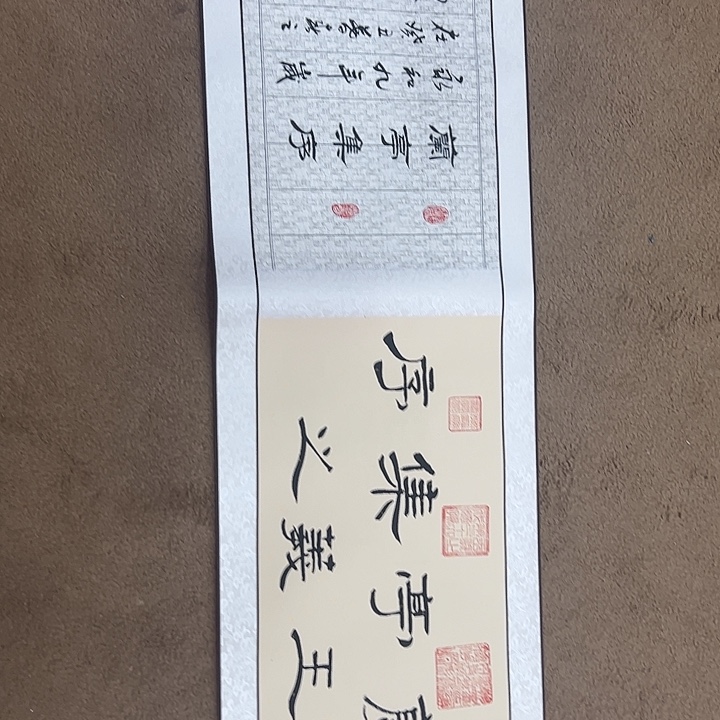 蘭亭集序
王羲之
蘭亭集序
永和九年歲
在癸丑暮春之